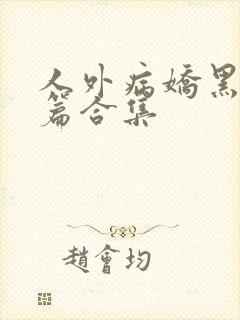 人外病嬌黑
篇合集
趙會均